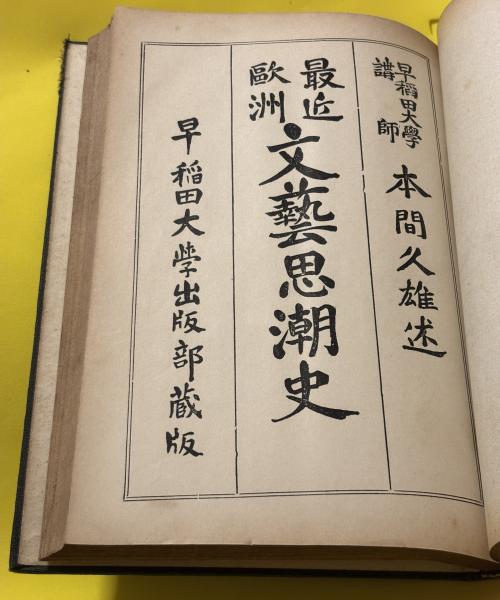 早稲田大學
講師
本間久雄述
最近
歐洲
文藝思潮史
早稲田大学出版部蔵版